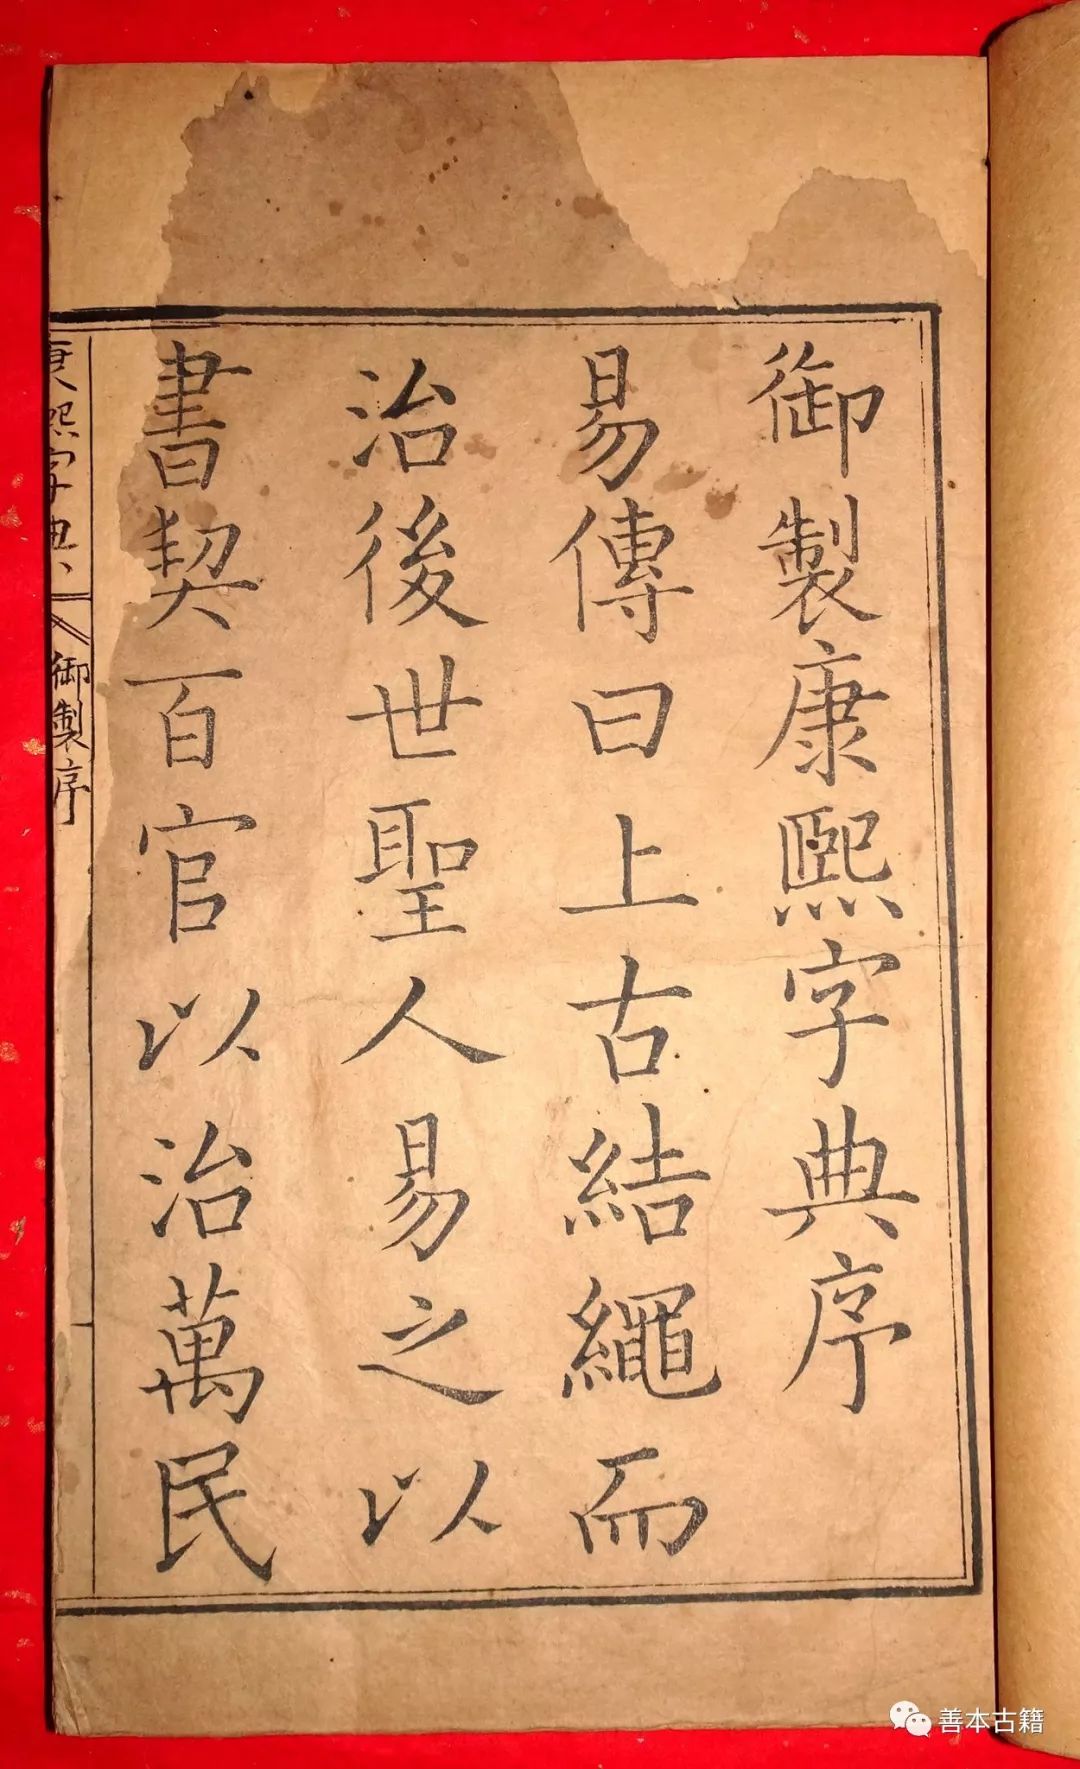 御製康熙字典序
易傳曰上古結繩而
治後世聖人易之以
書契百官以治萬民
康熙字典
御製序
善本古籍